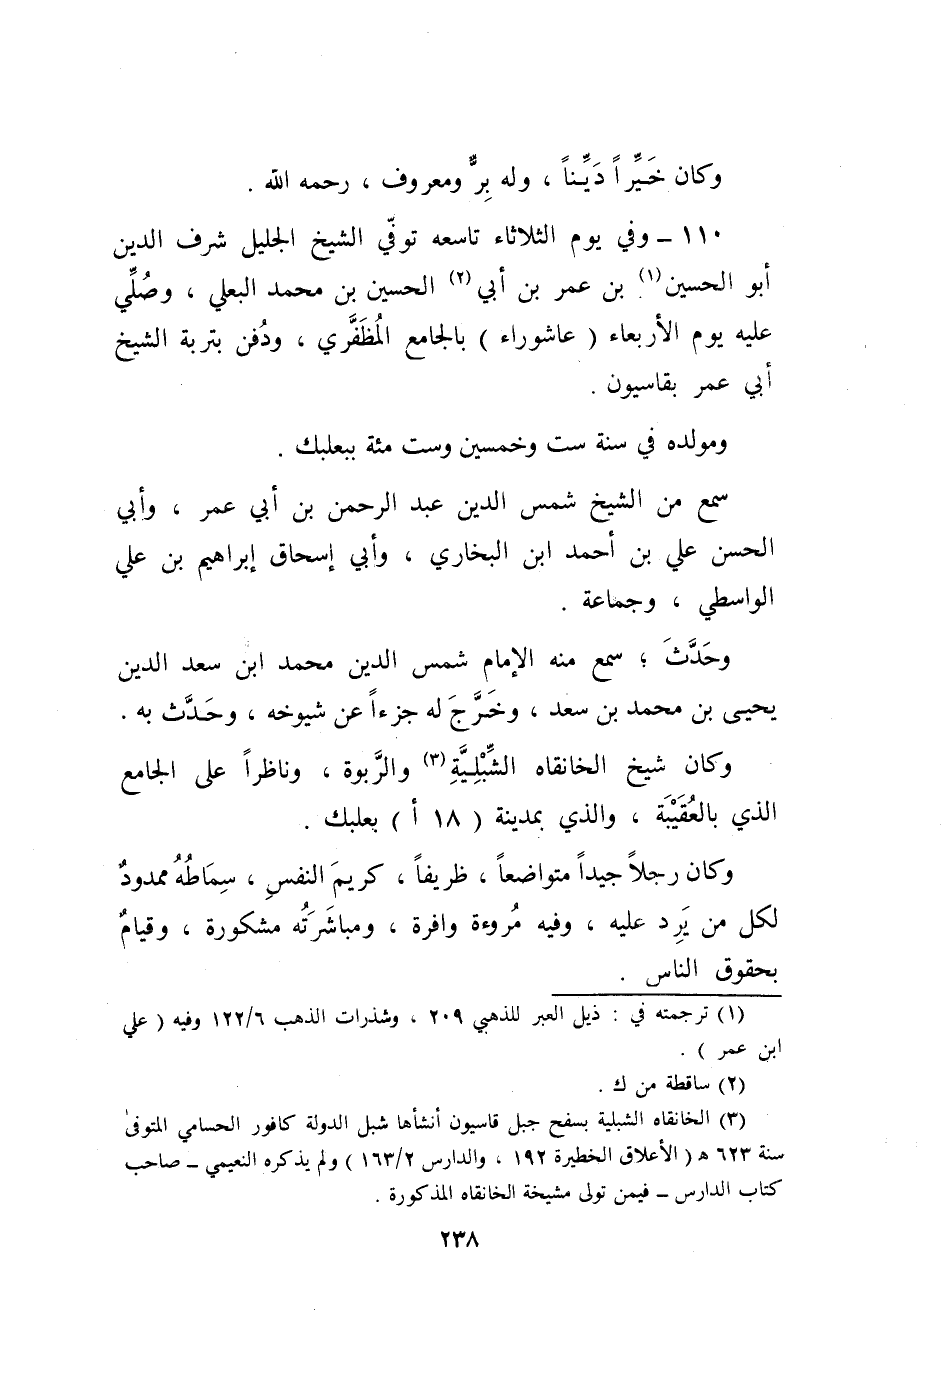 وكان خَيِّراً دَيِّناً ، وله بِرٌّ ومعروف ، رحمه الله .
١١٠ ــ وفي يوم الثلاثاء تاسعه توفّي الشيخ الجليل شرف الدين
أبو الحسين(١) بن عمر بن أبي(٢) الحسين بن محمد البعلي ، وصُلِّي
عليه يوم الأربعاء ( عاشوراء ) بالجامع المُظَفَّري ، ودُفن بتربة الشيخ
أبي عمر بقاسيون .
ومولده في سنة ست وخمسين وست مئة ببعلبك .
سمع من الشيخ شمس الدين عبد الرحمن بن أبي عمر ، وأبي
الحسن علي بن أحمد ابن البخاري ، وأبي إسحاق إبراهيم بن علي
الواسطي ، وجماعة .
وحَدَّثَ ؛ سمع منه الإمام شمس الدين محمد ابن سعد الدين
يحيى بن محمد بن سعد ، وخَرَّجَ له جزءاً عن شيوخه ، وحَدَّث به .
وكان شيخ الخانقاه الشِّبْلِيَّةِ(٣) والرَّبوة ، وناظراً على الجامع
الذي بالعُقَيْبَة ، والذي بمدينة ( ١٨ أ ) بعلبك .
وكان رجلاً جيداً متواضعاً ، ظريفاً ، كريمَ النفسِ ، سِمَاطُهُ ممدودٌ
لكل من يَرِد عليه ، وفيه مُروءة وافرة ، ومباشَرَتُه مشكورة ، وقيامٌ
بحقوق الناس .
(١) ترجمته في : ذيل العبر للذهبي ٢٠٩ ، وشذرات الذهب ١٢٢/٦ وفيه ( علي
ابن عمر ) .
(٢) ساقطة من ك .
(٣) الخانقاه الشبلية بسفح جبل قاسيون أنشأها شبل الدولة كافور الحسامي المتوفىٰ
سنة ٦٢٣ ه ( الأعلاق الخطيرة ١٩٢ ، والدارس ١٦٣/٢ ) ولم يذكره النعيمي ــ صاحب
كتاب الدارس ــ فيمن تولى مشيخة الخانقاه المذكورة .
٢٣٨